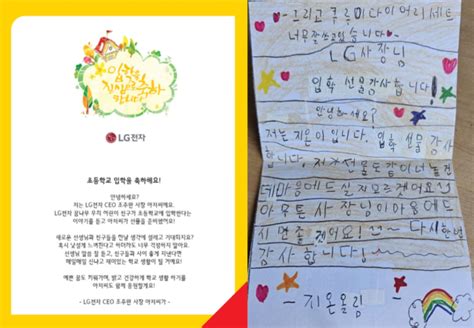 입학을
진심으로 축하
합니다
LG전자
초등학교 입학을 축하해요!
안녕하세요?
저는 LG전자 CEO 조주완 사장 아저씨예요.
LG전자 꿈나무 우리 어린이 친구가 초등학교에 입학한다는
이야기를 듣고 아저씨가 선물을 준비했어요!
새로운 선생님과 친구들을 만날 생각에 설레고 기대되지요?
혹시 낯설게 느껴진다고 하더라도 너무 걱정하지 말아요.
선생님 말씀 잘 듣고, 친구들과 사이 좋게 지낸다면
매일매일 신나고 재미있는 학교 생활이 될 거예요!
예쁜 꿈도 키워가며, 밝고 건강하게 학교 생활 하기를
아저씨도 함께 응원할게요!
- LG전자 CEO 조주완 사장 아저씨가 -
- 그리고 쿠루미 다이어리 세트
너무 잘 쓰고 있습니다
LG 사장님
입학 선물 감사합니다
안녕하세요?
저는 지온이 입니다. 입학 선물 감사
합니다. 저가 선물도 같이 너 놀건
데 마음에 드실지 모르겠어요
아무튼 사장님이 마음에 드
시면 좋겠어요! 다시 한번
감사합니다!
- 지온올림 -